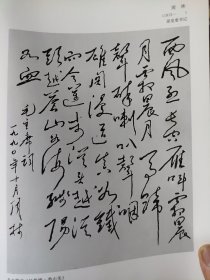 西风烈长空雁叫霜晨
月霜晨月马蹄
声碎喇叭声咽
雄关漫道真如铁
而今迈步从头越从
头越苍山如海残阳
如血
毛主席词
一九九〇年十月